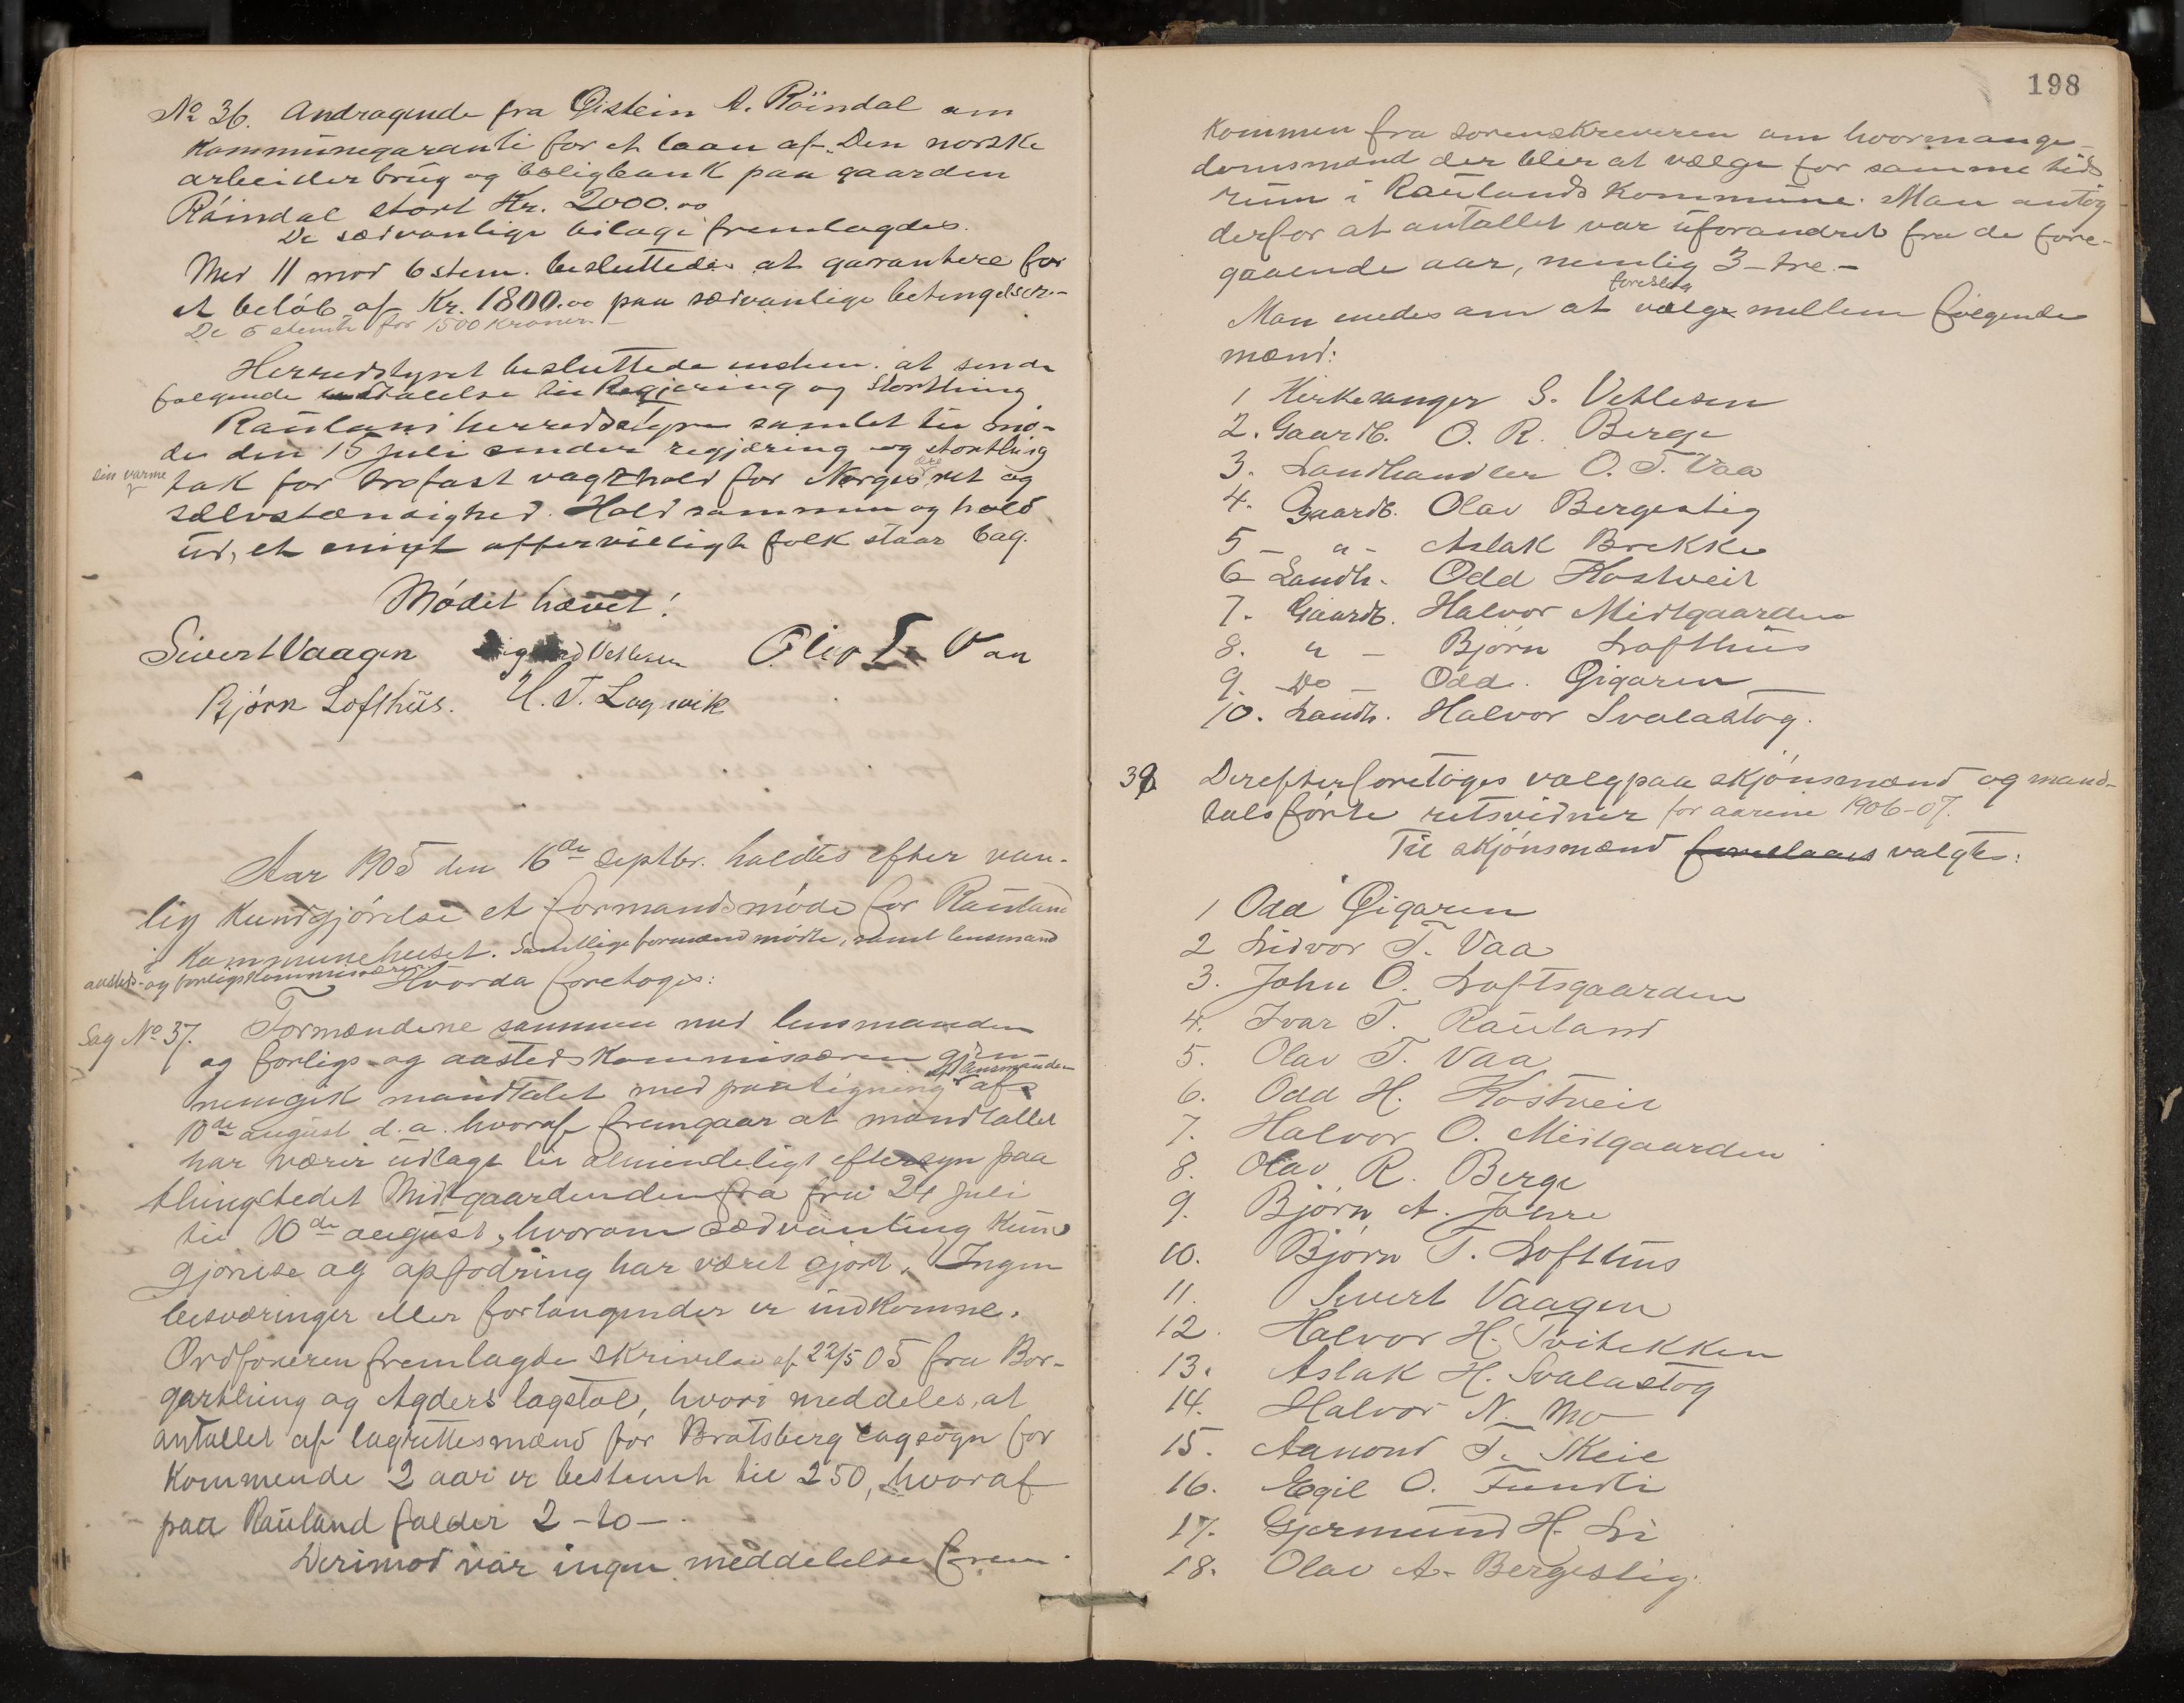 No 36. Andragende fra Øistein A. Röindal om
Kommunegaranti for et laan af Den norske
arbeiderbrug og boligbank paa gaarden
Röindal stort Kr. 2000.00
De sædvanlige bilage fremlagdes.
Med 11 mod 6 stem. besluttedes at garantere for
et beløb af Kr. 1800.00 paa sædvanlige betingelser.-
De 6 stemte for 1500 kroner.-
Herredstyret besluttede at sende
følgende udtalelse til Regjering og Storthing
Raulands herredstyre samlet til mø-
de den 15 juli sender regjæring og storthing
sin varme
tak for trofast vagthold for Norges ære ret og
selvstændighed. Hold sammen og hold
ud, et enigt offervilligt folk staar bag.
Mødet hævet!
Sivert Vaagen Sigurd Vetlesen Olav T. Vaa
Bjørn Lofthus. H. T. Lognvik
Aar 1905 den 16de septbr. holdtes efter van-
lig Kundgjørelse et formandsmøde for Rauland
i Kommunehuset. Samtlige formænd mødte, samt lensmand
aasteds- og forligskommissærer. Hvorda foretoges:
Sag No 37. Formændene sammen med lensmanden
og forligs- og aastedskommissæren gjen-
nemgik mandtalet med paategning af lensmanden af
10de august d.a. hvoraf fremgaar at mandtallet
har været udlagt til almindeligt eftersyn paa
thingstedet Midtgaarden fra 24 juli
til 10de august, hvorom sædvanlig Kund
gjørelse og opfodring har været gjort. Ingen
besværinger eller forlangender er indkomne.
Ordføreren fremlagde skrivelse af 22/5 05 fra Bor-
garthing og Agders lagstol, hvori meddeles, at
antallet af lagrettesmænd for Bratsberg lagsogn for
Kommende 2 aar er bestemt til 250, hvoraf
paa Rauland falder 2 - to -.
Derimod var ingen meddelelse frem-
198
kommen fra sorenskriveren om hvormange
domsmænd der blir at vælge for samme tids
rum i Raulands Kommune. Man antog
derfor at antallet var uforandret fra de fore-
gaaende aar, nemlig 3 - tre -
foreslaa
Man enedes om at vælge mellem følgende
mænd:
1 Kirkesanger S. Vetlesen
2. Gaardb. O. R. Berge
3. Landhandler O. T. Vaa
4. Gaardb. Olav Bergestig
5 - " - Aslak Brekke
6 Landh. Odd Kostveit
7. Gaardb. Halvor Midtgaarden
8. " - Bjørn Lofthus
9. Do - Odd Gigaren
10. Landh. Halvor Svalastog.
38 Derefter foretoges valg paa skjønsmænd og mand-
talsførte retsvidner for aarene 1906-07.
Til skjønsmænd foreslaaes valgtes:
1 Odd Gigaren
2 Lidvor T. Vaa
3. John O. Loftsgaarden
4. Ivar T. Rauland
5. Olav T. Vaa
6. Odd H. Kostveit
7. Halvor O. Midtgaarden
8. Olav R. Berge
9. Bjørn A. Jahre
10. Bjørn T. Lofthus
11. Sivert Vaagen
12. Halvor H. Tvitekken
13. Aslak H. Svalastog
14. Halvor N. Mo
15. Aamond T. Skeie
16. Egil O. Fundli
17. Gjermund H. Li
18. Olav A. Bergestig.